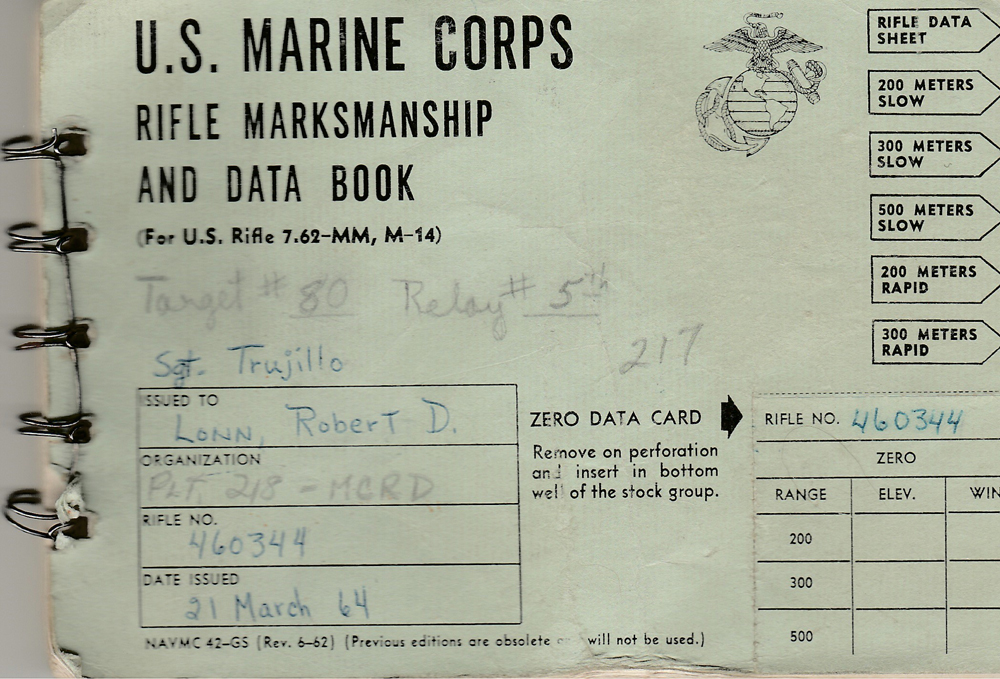 U.S. MARINE CORPS
RIFLE MARKSMANSHIP
AND DATA BOOK
(For U.S. Rifle 7.62-MM, M-14)
Target # 80 Relay # 5th
217
Sgt. Trujillo
ISSUED TO
LONN, Robert D.
ORGANIZATION
PLT. 218 - MCRD
RIFLE NO.
460344
DATE ISSUED
21 March 64
NAVMC 42-GS (Rev. 6-62) (Previous editions are obsolete will not be used.)
ZERO DATA CARD
Remove on perforation
and insert in bottom
well of the stock group.
RIFLE DATA
SHEET
200 METERS
SLOW
300 METERS
SLOW
500 METERS
SLOW
200 METERS
RAPID
300 METERS
RAPID
RIFLE NO. 460344
ZERO
RANGE ELEV. WIN
200
300
500